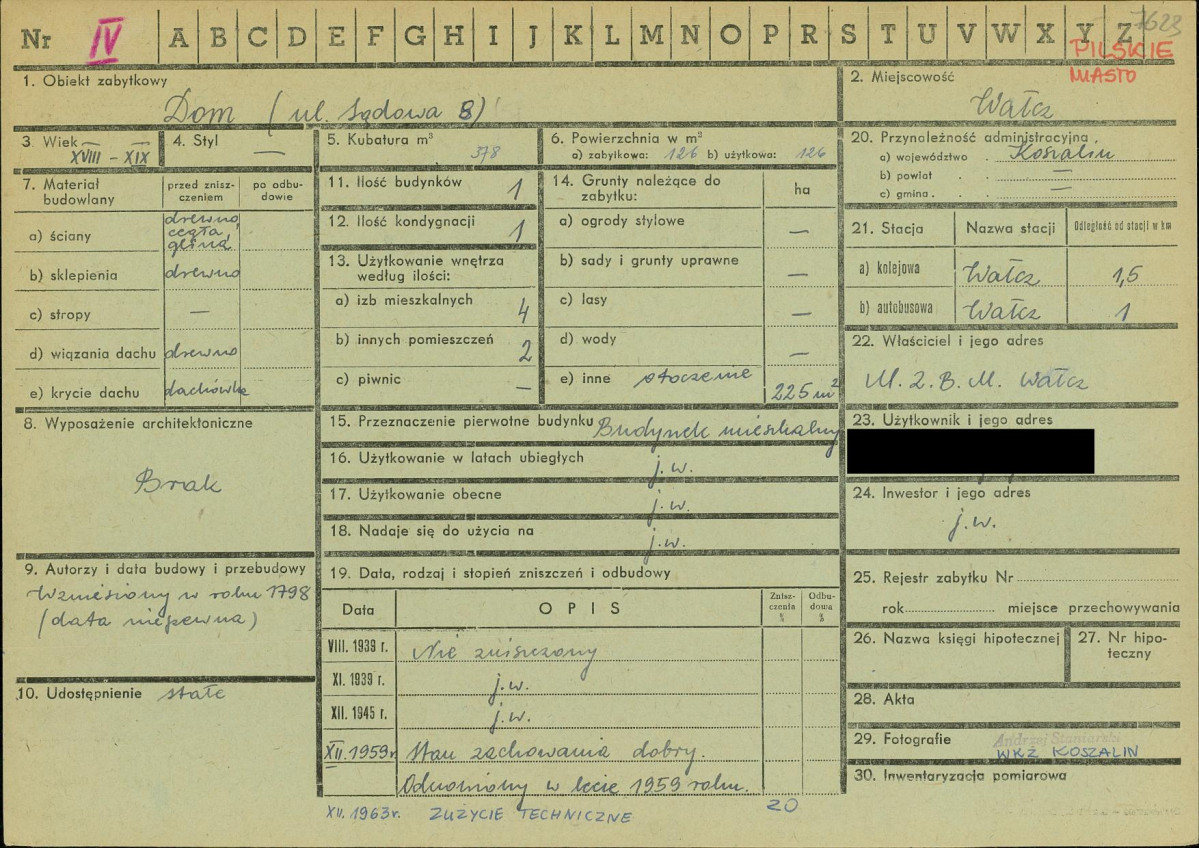 Nr IV A B C D E F G H I J K L M N O P R S T U V W X Y Z 7623
PILSKIE
MIASTO
1. Obiekt zabytkowy
Dom (ul. Sądowa 8)
2. Miejscowość
Wałcz
3 Wiek
XVIII – XIX
4. Styl
—
5. Kubatura m³
378
6. Powierzchnia w m²
a) zabytkowa: 126 b) użytkowa: 126
20. Przynależność administracyjna
a) województwo Koszalin
b) powiat —
c) gmina —
7. Materiał budowlany
przed znisz-
czeniem
po odbu-
dowie
a) ściany drewno,
cegła,
glina
b) sklepienia drewno
c) stropy —
d) wiązania dachu drewno
e) krycie dachu dachówka
8. Wyposażenie architektoniczne
Brak
9. Autorzy i data budowy i przebudowy
Wzniesiony w roku 1798
(data niepewna)
10. Udostępnienie stałe
11. Ilość budynków 1
12. Ilość kondygnacji 1
13. Użytkowanie wnętrza
według ilości:
a) izb mieszkalnych 4
b) innych pomieszczeń 2
c) piwnic —
14. Grunty należące do
zabytku:
ha
a) ogrody stylowe —
b) sady i grunty uprawne —
c) lasy —
d) wody —
e) inne otoczenie 225 m²
15. Przeznaczenie pierwotne budynku Budynek mieszkalny
16. Użytkowanie w latach ubiegłych j.w.
17. Użytkowanie obecne j.w.
18. Nadaje się do użycia na j.w.
19. Data, rodzaj i stopień zniszczeń i odbudowy
Data OPIS
Znisz-
czenia
%
Odbu-
dowa
%
VIII. 1939 r. Nie zniszczony
XI. 1939 r. j.w.
XII. 1945 r. j.w.
XII. 1959 r. Stan zachowania dobry.
Odnowiony w lecie 1959 roku.
XII. 1963 r. ZUŻYCIE TECHNICZNE 20
21. Stacja Nazwa stacji Odległość od stacji w km
a) kolejowa Wałcz 1,5
b) autobusowa Wałcz 1
22. Właściciel i jego adres
M.Z.B.M. Wałcz
23. Użytkownik i jego adres
24. Inwestor i jego adres
j.w.
25. Rejestr zabytku Nr
rok miejsce przechowywania
26. Nazwa księgi hipotecznej
27. Nr hipo-
teczny
28. Akta
29. Fotografie
WKZ KOSZALIN
30. Inwentaryzacja pomiarowa